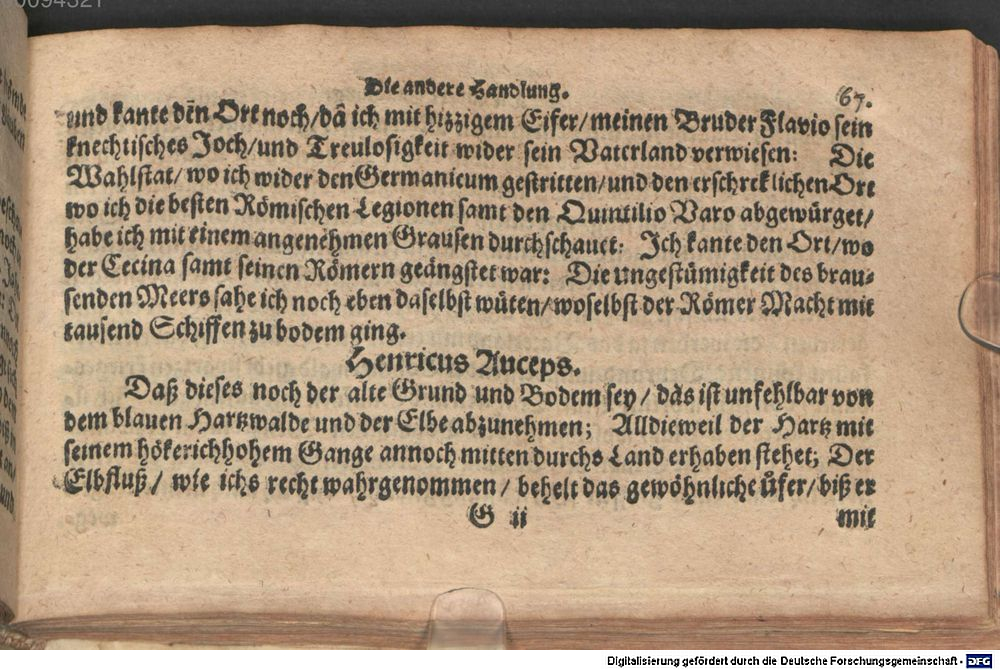 Die andere Handlung.
67.
und kante dēn Ort noch/dâ ich mit hizzigem Eifer/meinen Bruder Flavio sein
knechtisches Joch/und Treulosigkeit wider sein Vaterland verwiesen: Die
Wahlstat/wo ich wider den Germanicum gestritten/und den erschreklichen Ort
wo ich die besten Römischen Legionen samt den Quintilio Varo abgewürget/
habe ich mit einem angenehmen Grausen durchschauet: Ich kante den Ort/wo
der Cecina samt seinen Römern geängstet war: Die ungestümigkeit des brau-
senden Meers sahe ich noch eben daselbst wüten/woselbst der Römer Macht mit
tausend Schiffen zu bodem ging.
Henricus Auceps.
Daß dieses noch der alte Grund und Bodem sey/dâs ist unfehlbar von
dem blauen Hartzwalde und der Elbe abzunehmen; Alldieweil der Hartz mit
seinem hökerichhohem Gange annoch mitten durchs Land erhaben stehet; Der
Elbfluß/ wie ichs recht wahrgenommen/ behelt das gewöhnliche ůfer/biß er
G ii
mit
Digitalisierung gefördert durch die Deutsche Forschungsgemeinschaft - DFG